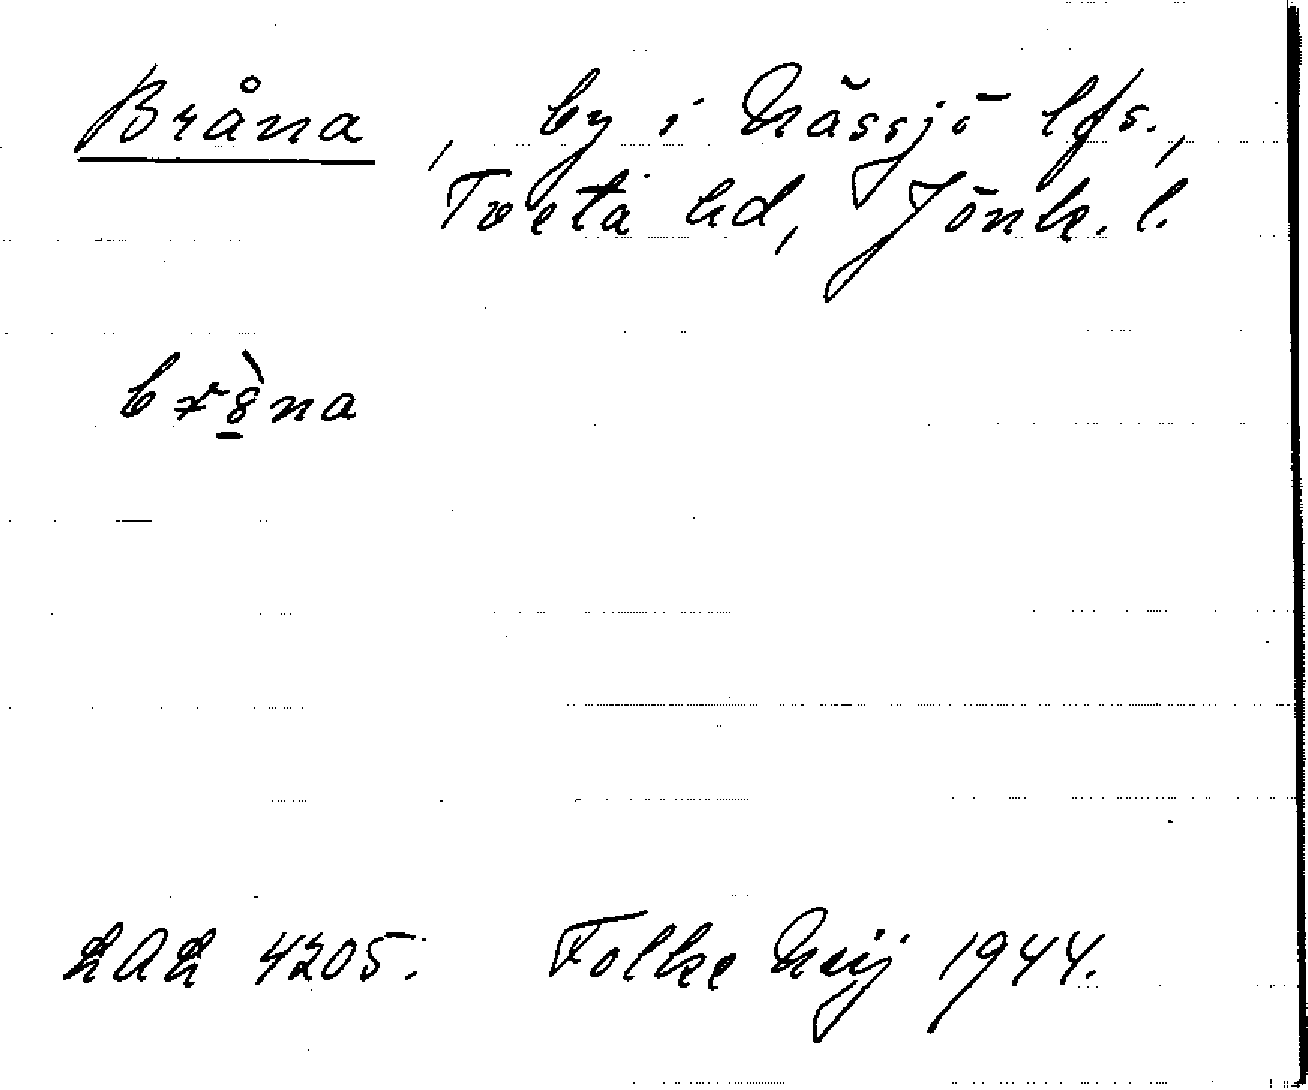 Bråna, by i Nässjö lfs.,
Tveta hd, Jönk. l.
brna
4205. Folke Neij 1944.